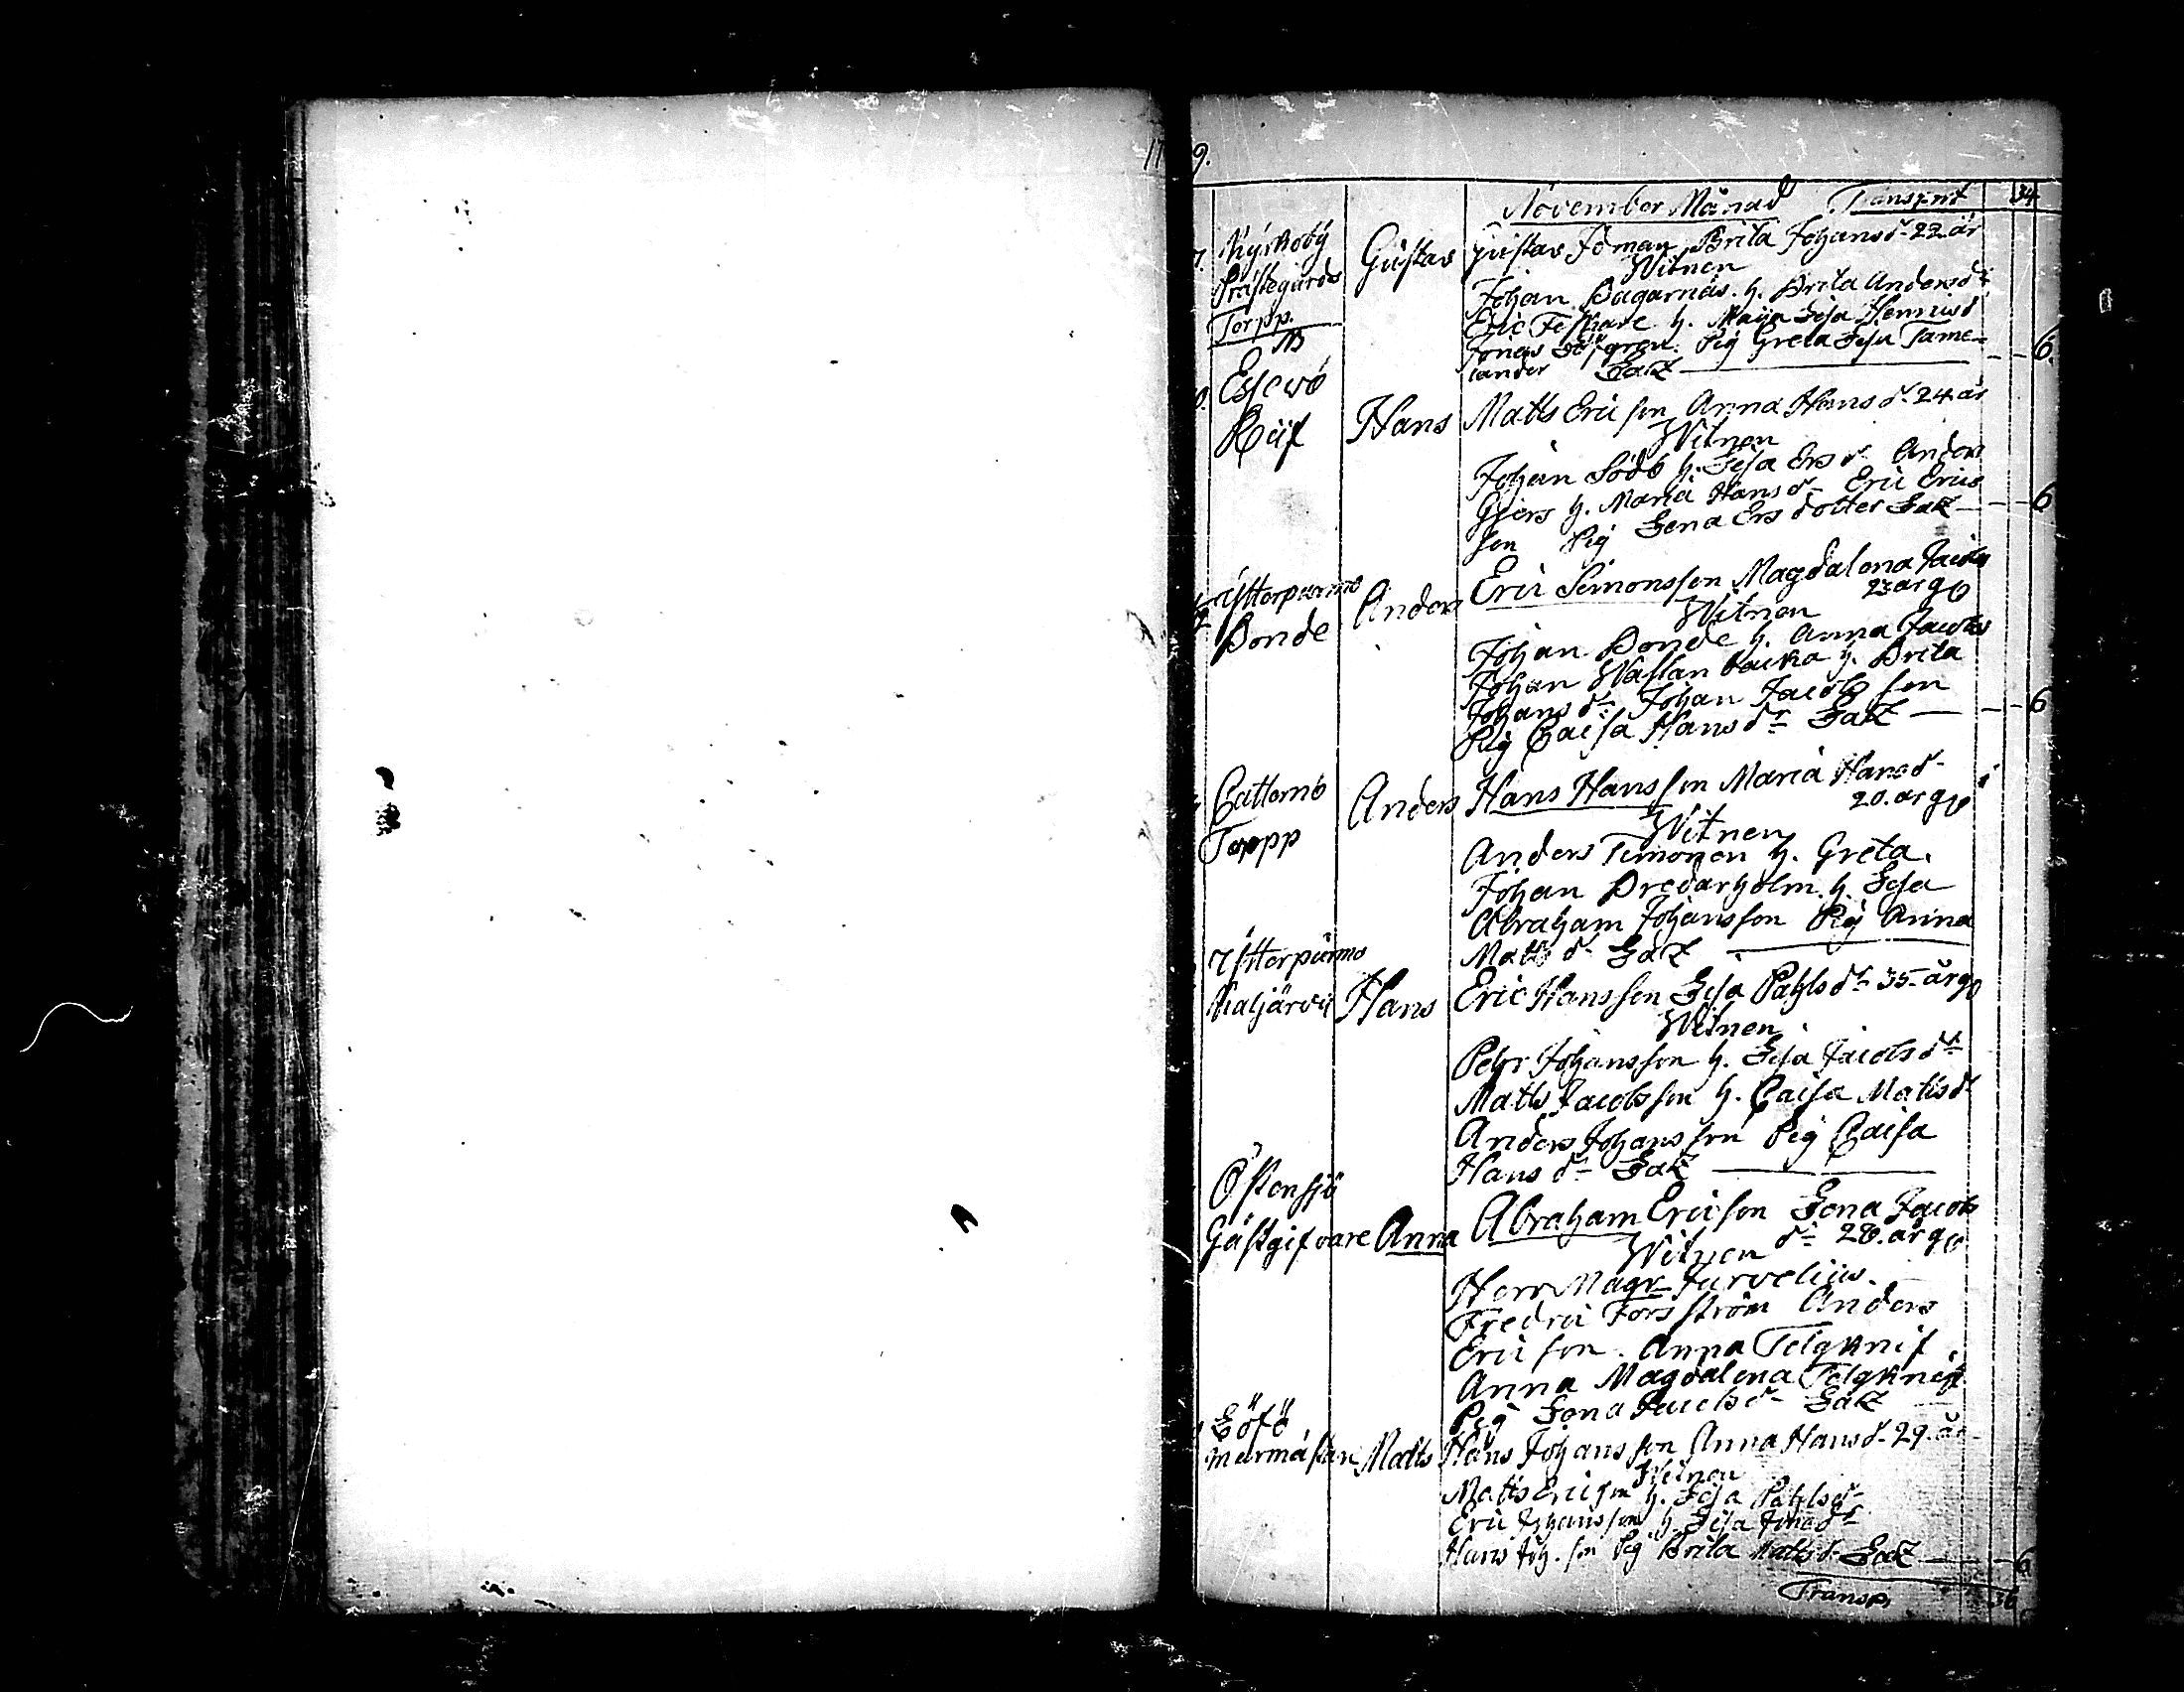 November Månad Transport 34
Kyrkoby Gustav Gustav Foman Brita Johansdr 22 år
Prästegårds Witnen
Johan Bagarnäs. h. Brita Andersdr
Torpp. Eric Feskare h. Maja Lisa Henricsd
Jonas Löfgren. Pig Greta Lisa Tame-
lander Lax 6.
Essewö
Räif Hans Matts Ericsson Anna Hansdr 24 år
Witnen
Johan Södb h. Lisa Ersdr Anders
Giers h. Maria Hansdr Eric Erics
son Pig Lena Ersdotter Lax 6
Ytterpurmo Anders Eric Simonsson Magdalena Jacobs
23 år g
Bonde Witnen
Johan Bonde h. Anna Jacobs
Johan Waslanbacka h. Brita
Johansdr Johan Jacobsson
Pig Caisa Hansdr Lax 6
Cattornö Anders Hans Hansson Maria Hansd
20. år g
Torpp Witnen
Anders Timonen h. Greta.
Johan Bredarholm. h. Lisa
Abraham Johansson Pig Anna
Mattsdr Lax
Ytterpurmo
Kaljärvi Hans Eric Hansson Lisa Pahlsdr 35 år g
Witnen
Pehr Johansson h. Lisa Jacobsdr
Matts Jacobsson h. Caisa Mattsdr
Anders Johansson Pig Caisa
Hansdr Lax
Östensjö
Gästgifvare Anna Abraham Ericsson Lena Jacobs
dr 28. år g
Witnen
Herr Magr Jurvelius.
Fredric Forsström Anders
Ericsson. Anna Telgknif
Anna Magdalena Telgknif
Pig Lena Jacobsdr Lax
Löfö
Murmästare Matts Hans Johansson Anna Hansd. 29. år
Witnen
Matts Ericsson h. Lisa Pahlsdr
Eric Johansson h. Lisa Jonasdr
Hans Joh.son Pig Brita Mattsdr Lax 6
Transp. 36